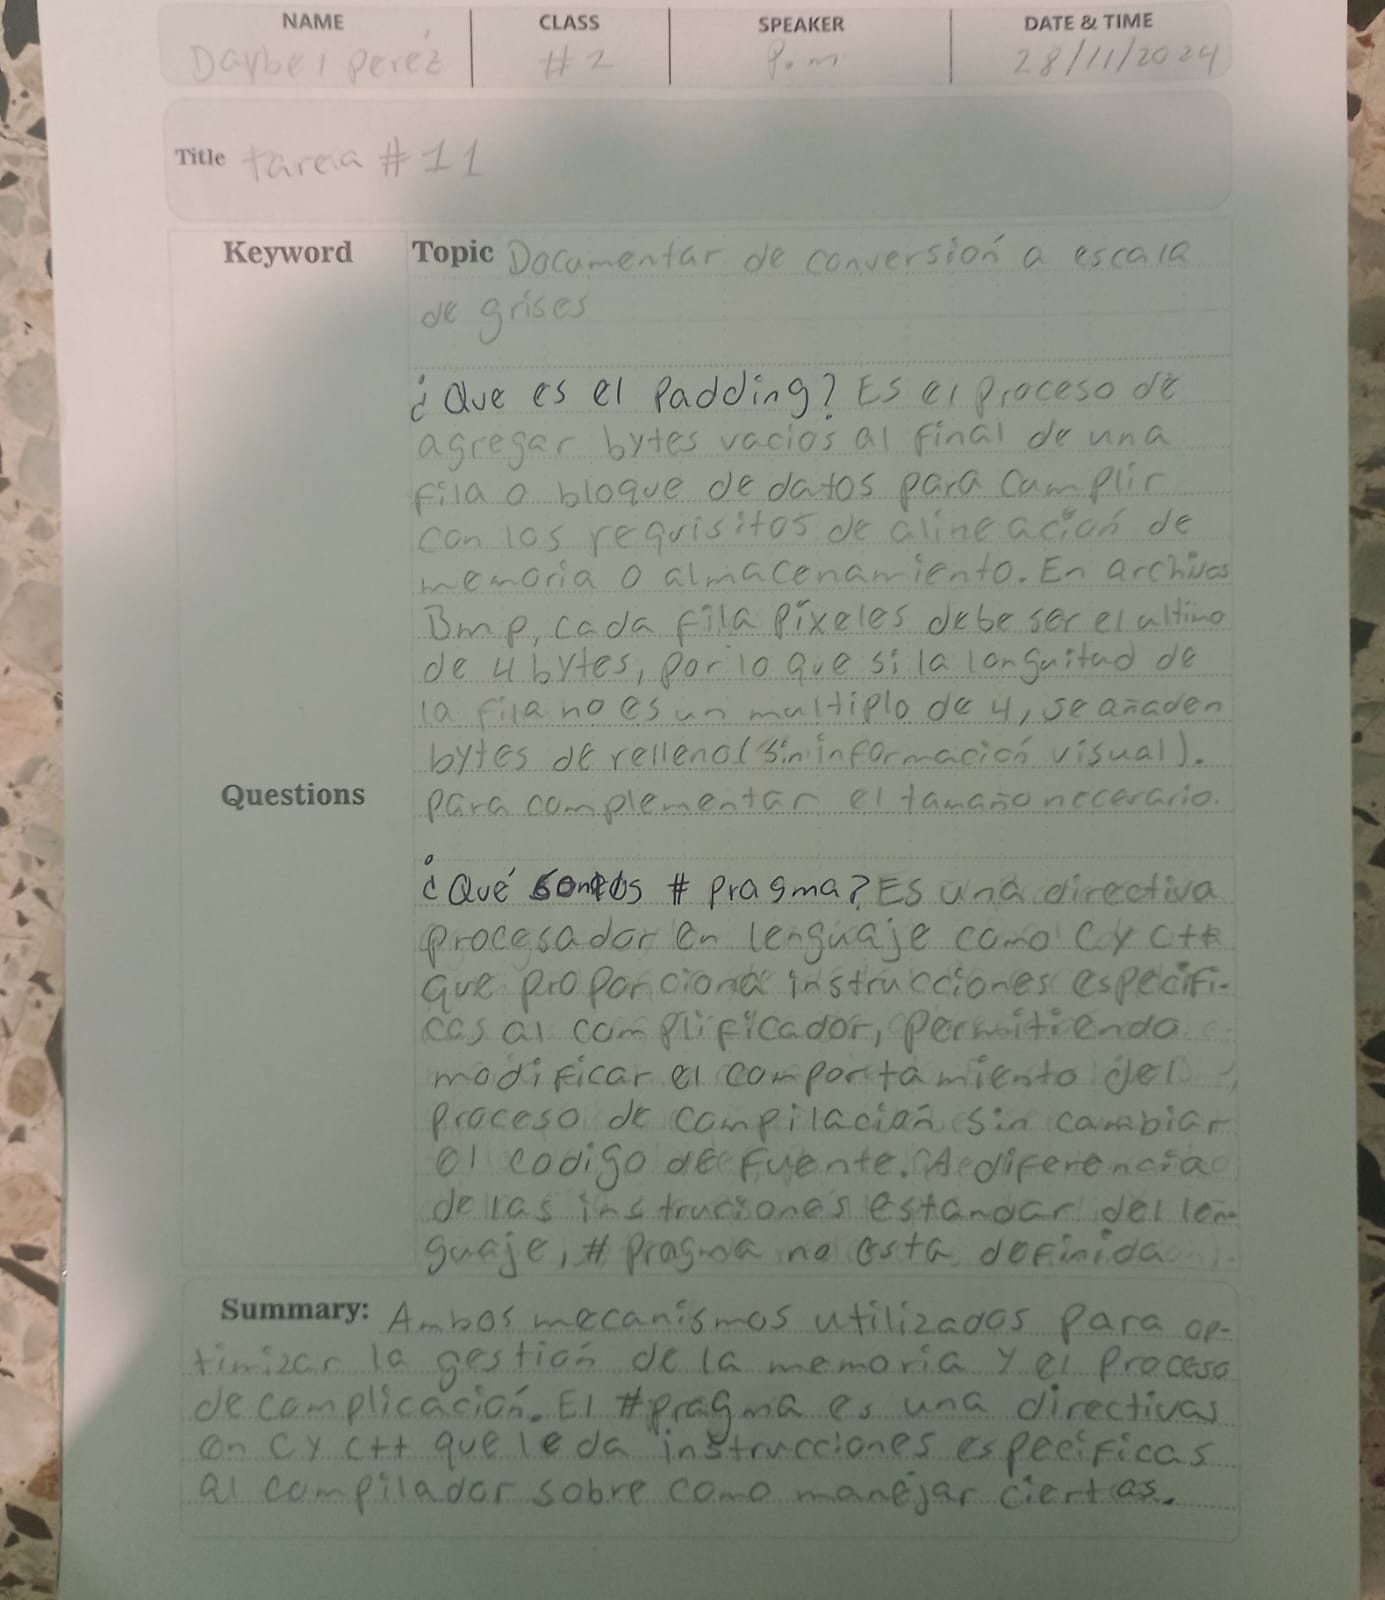 NAME CLASS SPEAKER DATE & TIME
Daybel perez #2 P.m 28/11/2024
Title tarea #11
Keyword Topic Documentar de conversión a escala
de grises
¿Que es el Padding? Es el proceso de
agregar bytes vacios al final de una
fila o bloque de datos para cumplir
con los requisitos de alineación de
memoria o almacenamiento. En archivos
Bmp, cada fila píxeles debe ser el ultimo
de 4 bytes, por lo que si la longuitud de
la fila no es un multiplo de 4, se añaden
bytes de relleno (sin información visual).
Questions para complementar el tamaño necerario.
¿Qué son los # pragma? Es una directiva
procesador en lenguaje como C y C++
que proporciona instrucciones especifi-
cas al complificador, permitiendo
modificar el comportamiento del
proceso de compilación sin cambiar
el codigo de fuente. A diferencia
de las instruciones estandar del len-
guaje, # pragma no esta definida
Summary: Ambos mecanismos utilizados para op-
timizar la gestión de la memoria y el proceso
de complicación. El #pragma es una directivas
en C y C++ que le da instrucciones especificas
al compilador sobre como manejar ciertas.